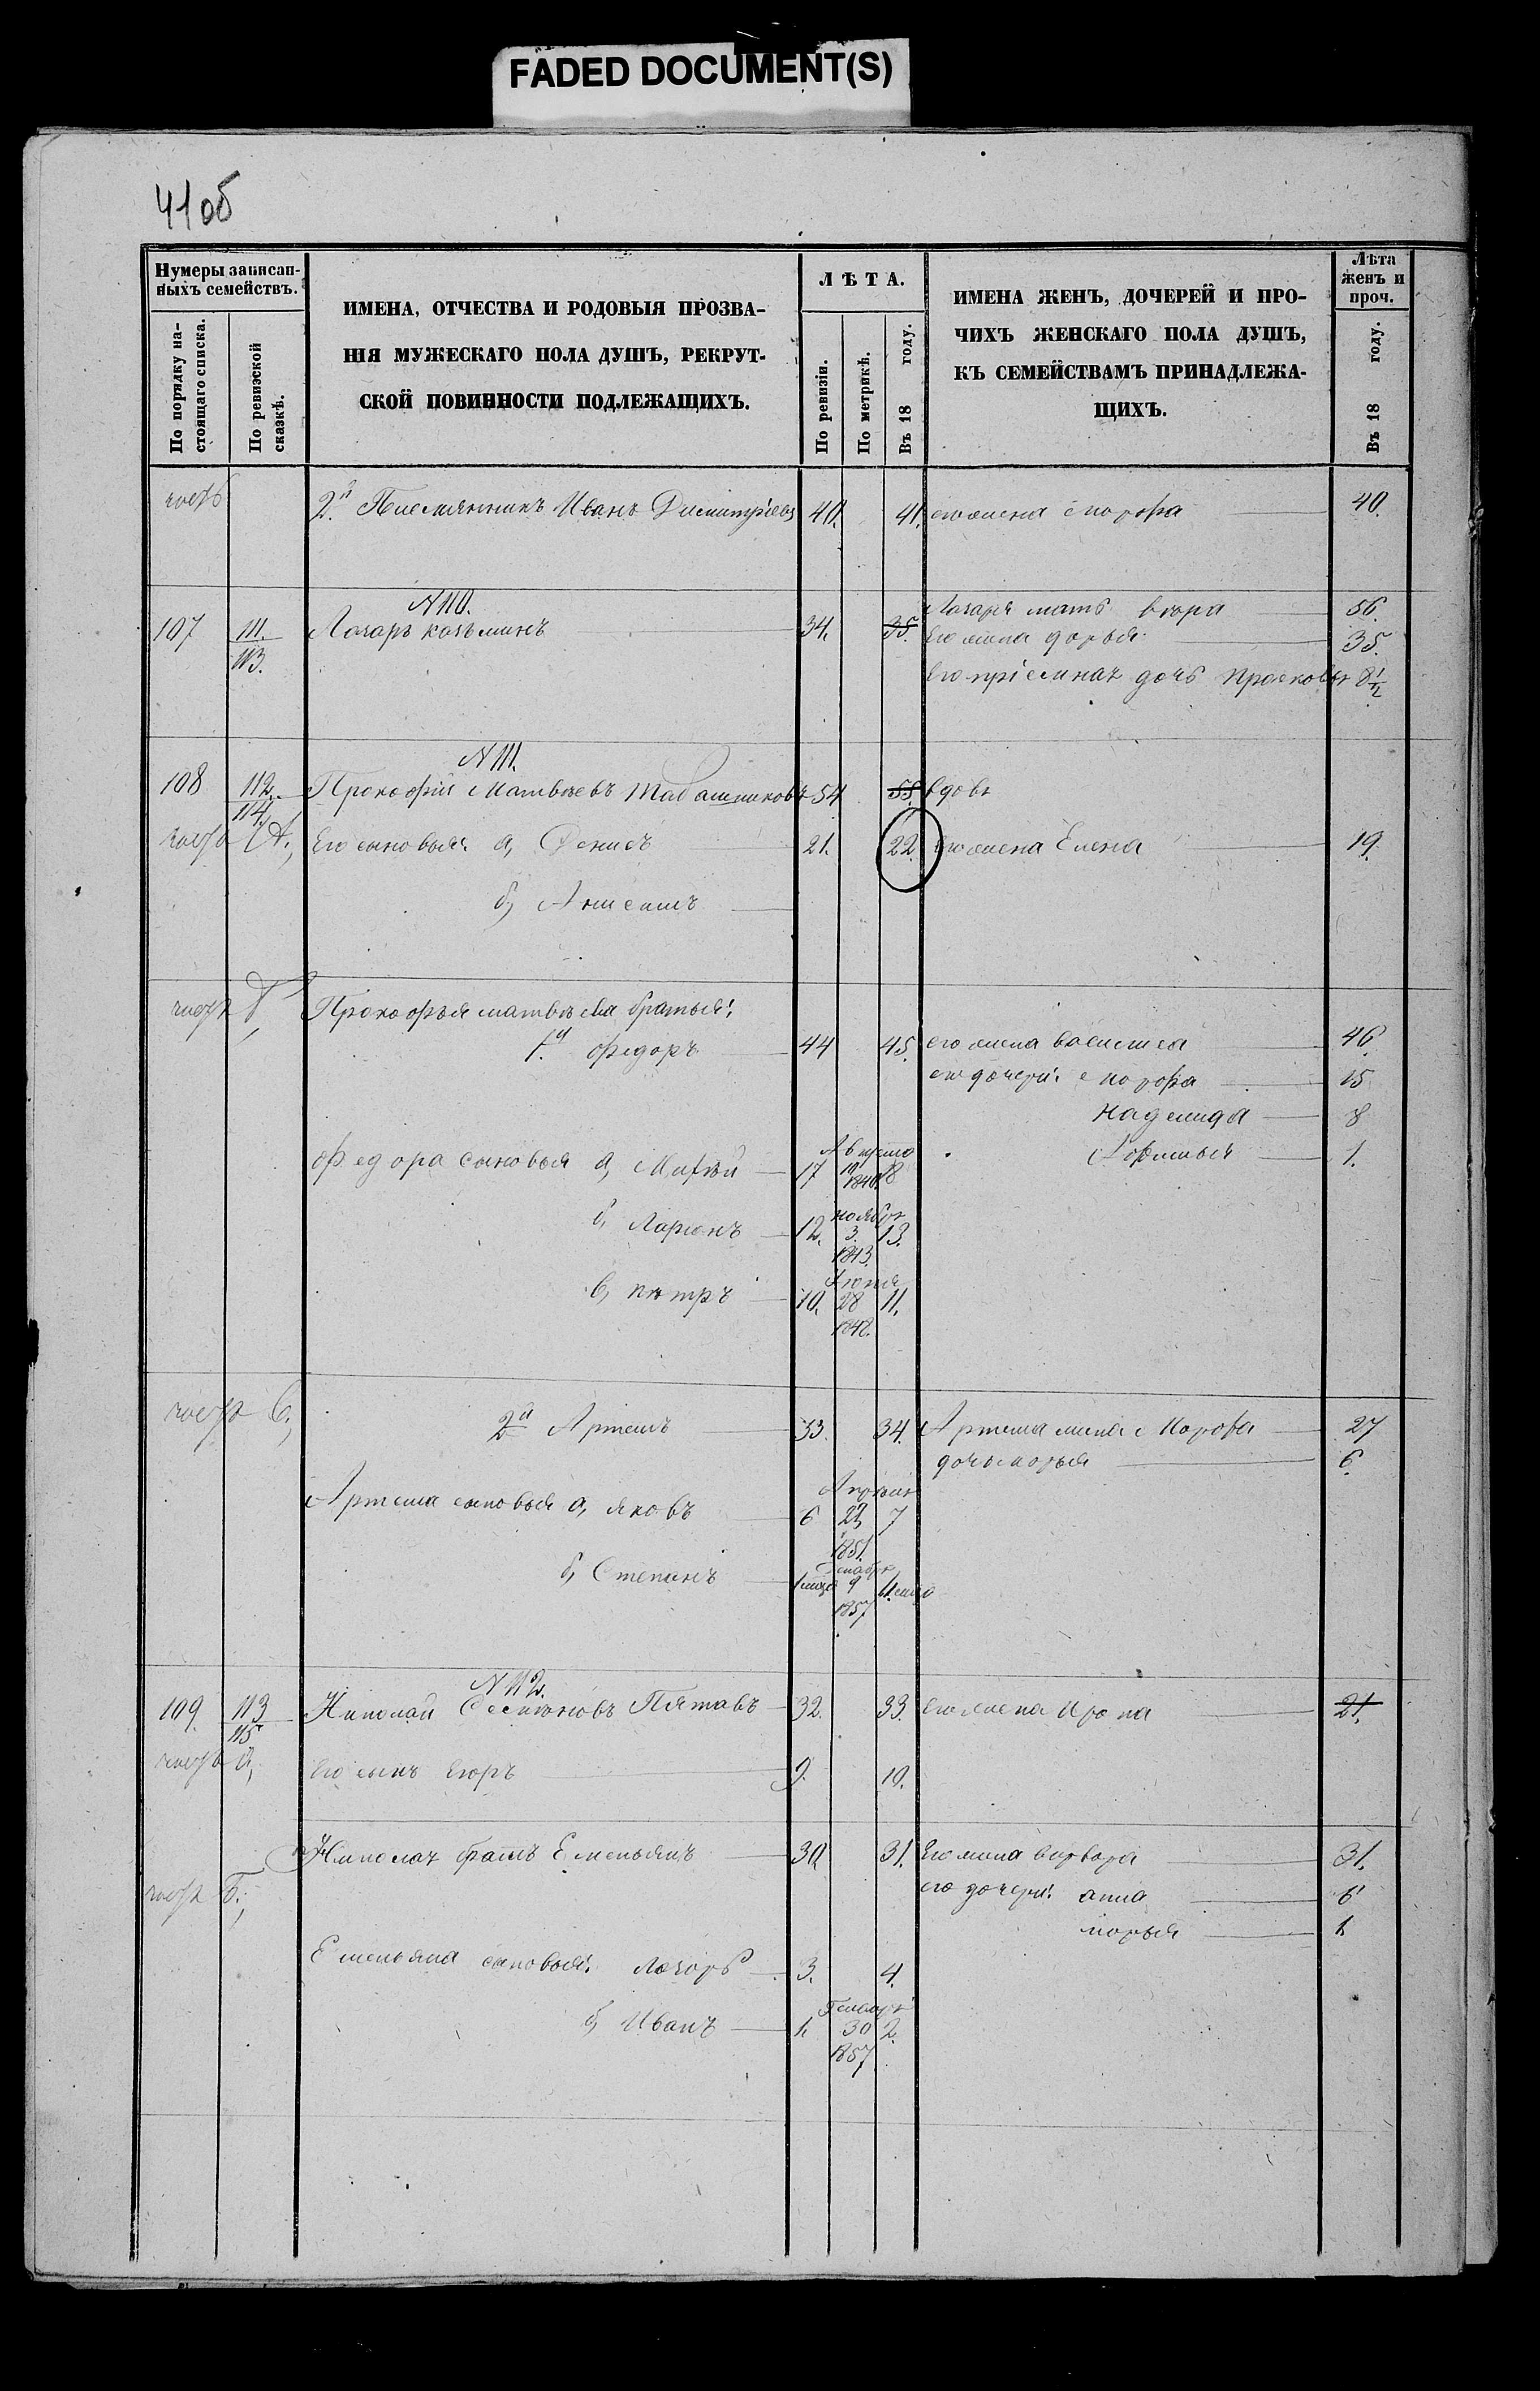 FADED DOCUMENT(S)
41об
Нумеры записан-
ныхъ семействъ.
По порядку на-
стоящаго списка.
По ревизской
сказкѣ.
ИМЕНА, ОТЧЕСТВА И РОДОВЫЯ ПРОЗВА-
НІЯ МУЖЕСКАГО ПОЛА ДУШЪ, РЕКРУТ-
СКОЙ ПОВИННОСТИ ПОДЛЕЖАЩИХЪ.
ЛѢТА.
По ревизіи.
По метрикѣ.
Въ 18 году.
ИМЕНА ЖЕНЪ, ДОЧЕРЕЙ И ПРО-
ЧИХЪ ЖЕНСКАГО ПОЛА ДУШЪ,
КЪ СЕМЕЙСТВАМЪ ПРИНАДЛЕЖА-
ЩИХЪ.
Лѣта
женъ и
проч.
Въ 18 году.
2й Племянникъ Иванъ Димитріевъ 40. 41. его жена 40.
N 110.
107 111. Лазарь козьминъ 34. 35. Лазаря мать 56.
113. его жена дарья 35.
его пріемная дочь 8 1/2
N 111.
108 112. Прокофій Матвѣевъ Табашниковъ 54 55. вдовъ
114.
А, Его сыновья: а, Денисъ 21. 22. его жена Елена 19.
б,
Прокофья матвѣева братья:
1й Федоръ 44 45. его жена 46.
его дочери: 15
8
1.
Августа
Федора сыновья а, 17 19 18
1840.
ноября
б, Ларіонъ 12. 3. 13.
1843.
в, петръ 10. 28 11.
2й Артемъ 33. 34. Артема жена 27
дочь марья 6.
Апрѣля
Артема сыновья а, яковъ 6 23 7
1851.
б, Степанъ 9
1857
N 112.
109. 113 Николай Семіоновъ Пятавъ 32. 33. его жена 21.
115
а, его сынъ егоръ 9. 10.
Николая братъ Емельянъ 30 31. Его жена варвара 31.
Б., его дочери: анна 6
марья 1.
Емельяна сыновья: лазорь 3. 4.
Генваря
б, Иванъ 1. 30 2.
1857